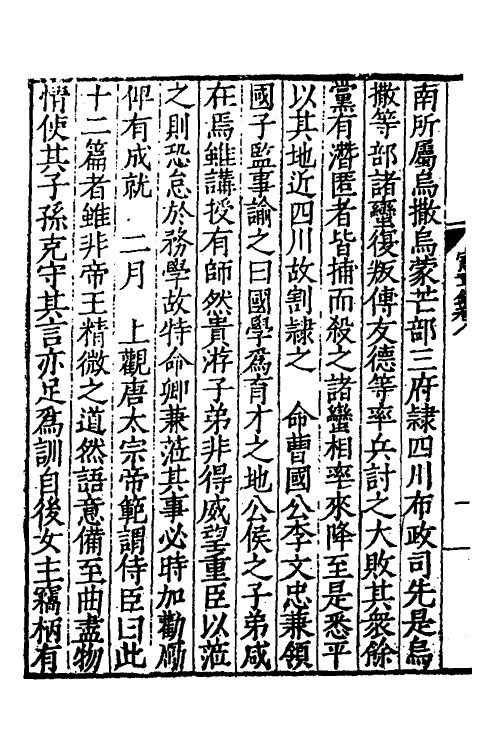 南所屬烏撒烏蒙芒部三府隷四川布政司先是烏
撒等部諸蠻復叛傅友德等率兵討之大敗其衆餘
黨有潛匿者皆捕而殺之諸蠻相率來降至是悉平
以其地近四川故割隷之　命曹國公李文忠兼領
國子監事諭之曰國學爲育才之地公侯之子弟咸
在焉雖講授有師然貴游子弟非得威望重臣以蒞
之則恐怠於務學故特命卿兼蒞其事必時加勸勵
仰有成就　二月　上觀唐太宗帝範謂侍臣曰此
十二篇者雖非帝王精微之道然語意備至曲盡物
情使其子孫克守其言亦足爲訓自後女主竊柄有